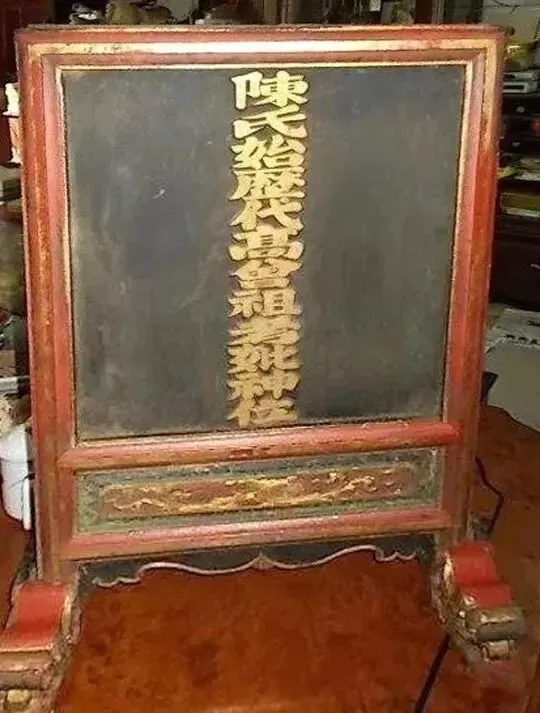 陳氏始歷代高曾祖考妣神位